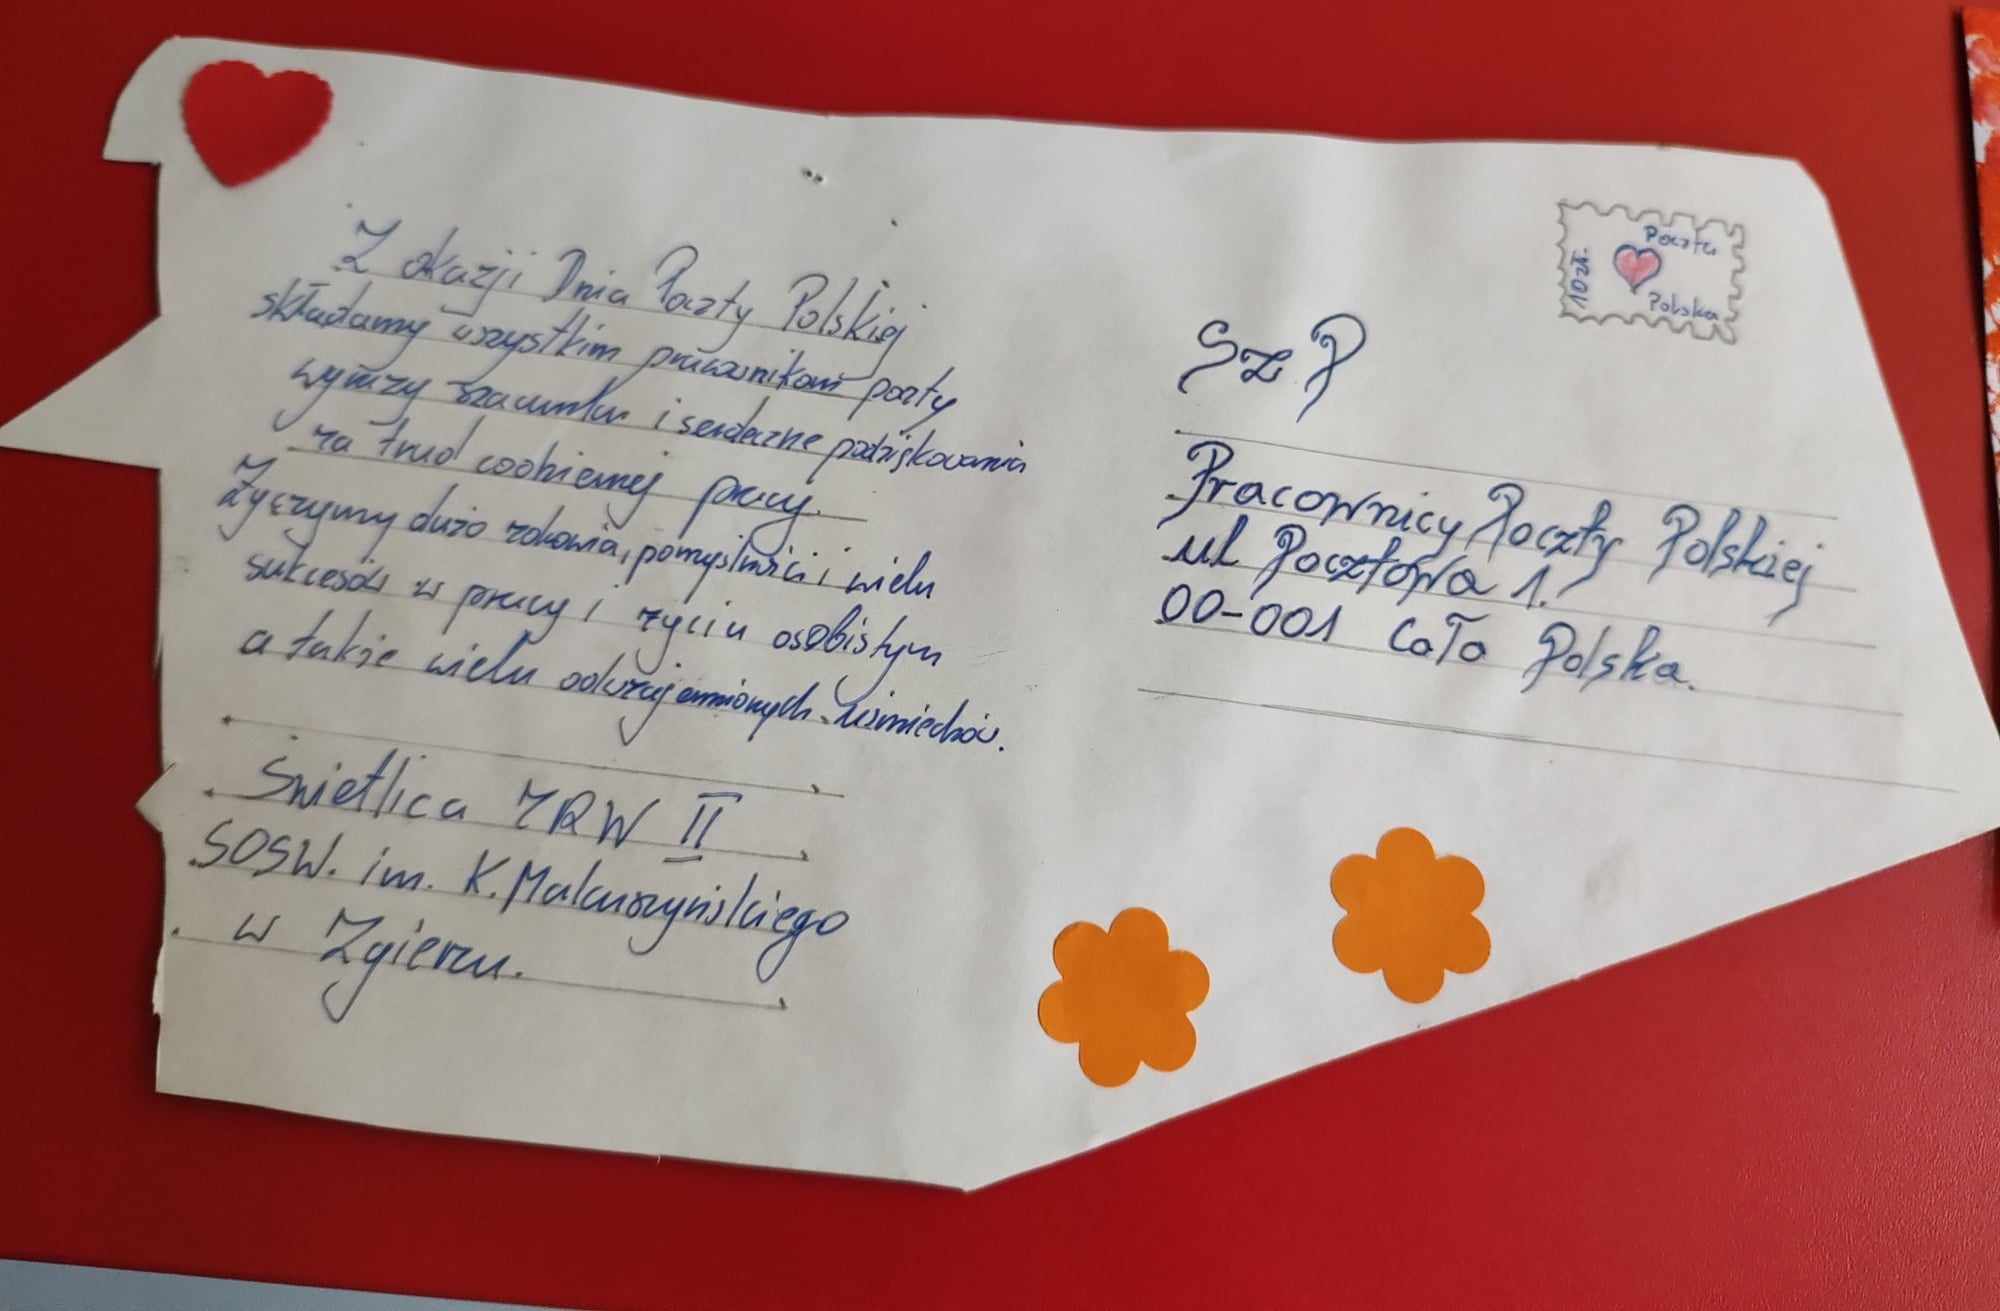 Z okazji Dnia Poczty Polskiej
składamy wszystkim pracownikom poczty
wyrazy szacunku i serdeczne podziękowania
za trud codziennej pracy.
Życzymy dużo zdrowia, pomyślności i wielu
sukcesów w pracy i życiu osobistym
a także wielu odwzajemnionych uśmiechów.
Świetlica ZRW II
SOSW. im. K. Makuszyńskiego
w Zgierzu.
10 zł.
Poczta
Polska
Sz P
Pracownicy Poczty Polskiej
ul Pocztowa 1.
00-001 Cała Polska.